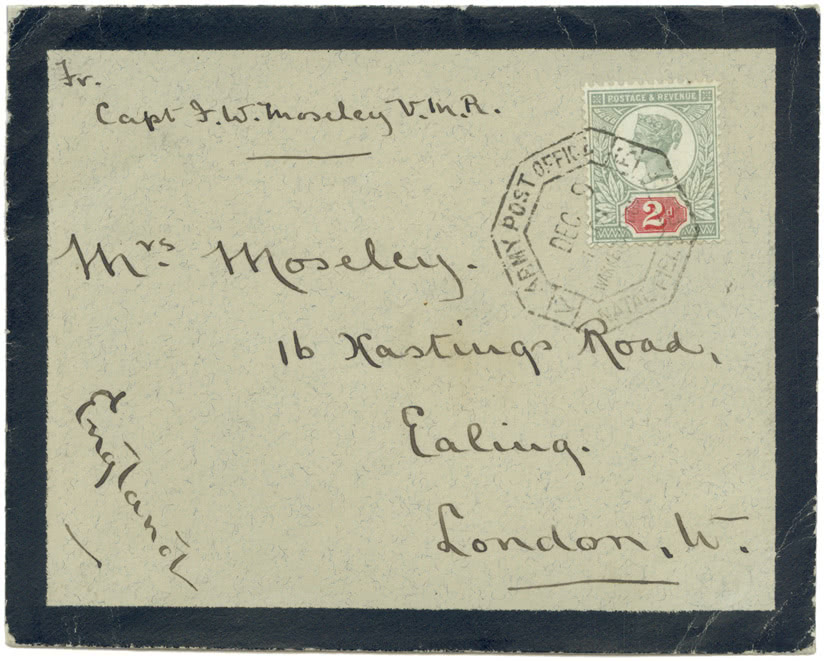 Fr.
Capt F. W. Moseley V.M.R.
POSTAGE & REVENUE
2d
ARMY POST OFFICE
DEC 9
NATAL FIEL
Mrs Moseley.
16 Hastings Road,
Ealing.
London, W.
England